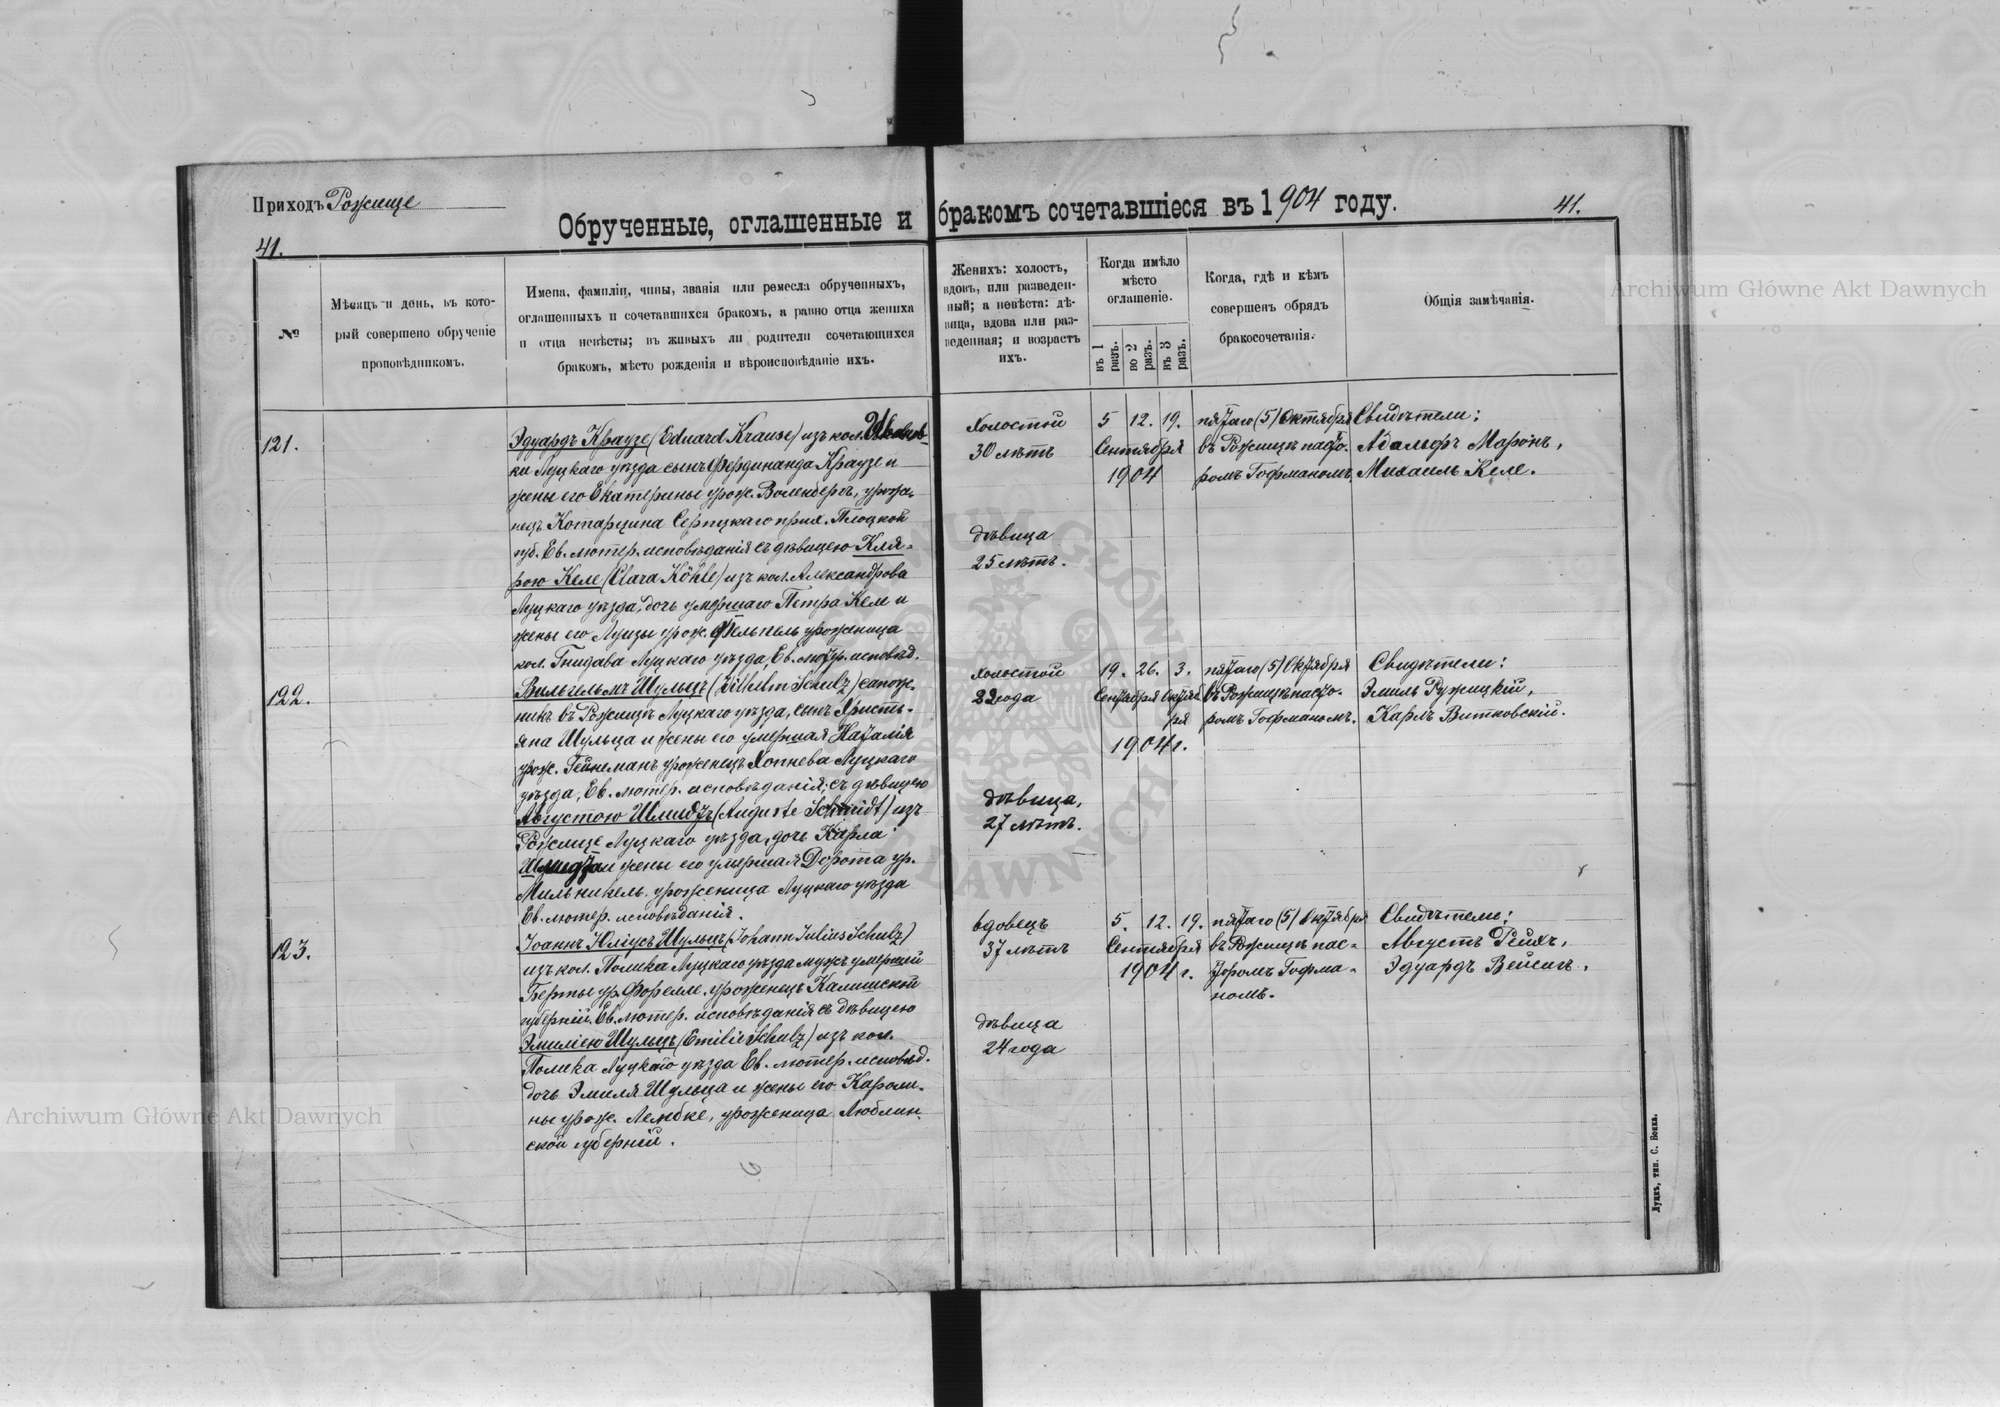 Приходъ Рожище
Обрученные, оглашенные и бракомъ сочетавшіеся въ 1904 году.
41.
41.
№
Мѣсяцъ и день, въ кото-
рый совершено обрученіе
проповѣдникомъ.
Имена, фамиліи, чины, званія или ремесла обрученныхъ,
оглашенныхъ и сочетавшихся бракомъ, а равно отца жениха
и отца невѣсты; въ живыхъ ли родители сочетающихся
бракомъ, мѣсто рожденія и вѣроисповѣданіе ихъ.
Женихъ: холостъ,
вдовъ, или разведен-
ный; а невѣста: дѣ-
вица, вдова или раз-
веденная; и возрастъ
ихъ.
Когда имѣло
мѣсто
оглашеніе.
въ 1 разъ.
во 2 разъ.
въ 3 разъ.
Когда, гдѣ и кѣмъ
совершенъ обрядъ
бракосочетанія.
Общія замѣчанія.
121.
Эдуардъ Краузе (Eduard Krause) изъ кол.
ки Луцкаго уѣзда сынъ Фердинанда Краузе и
жены его Екатерины урож. Воленбергъ, уроже-
нецъ Котарцина Серпцкаго прих. Плоцкой
губ. Ев. лютер. исповѣданія съ дѣвицею Кля-
рою Келе (Clara Köhle) изъ кол. Александрова
Луцкаго уѣзда, дочь умершаго Петра Келе и
жены его Луизы урож. уроженица
кол. Гнидава Луцкаго уѣзда, Ев. лютер. исповѣд.
холостой
30 лѣтъ
дѣвица
25 лѣтъ.
5 12. 19.
Сентября
1904
пятаго (5) Октября
въ Рожищѣ пасто-
ромъ Гофманомъ.
Свидѣтели:
Адальфъ Маронъ,
Михаилъ Келе.
122.
Вильгельмъ Шульцъ (Wilhelm Schulz) сапож-
никъ въ Рожищѣ Луцкаго уѣзда, сынъ Христь-
яна Шульца и жены его умершая Наталія
урож. Гейнеманъ уроженецъ Копнева Луцкаго
уѣзда, Ев. лютер. исповѣданія, съ дѣвицею
Августою Шмидтъ (Auguste Schmidt) изъ
Рожище Луцкаго уѣзда, дочь Карла
Шмидта и жены его умершая Дорота ур.
Мильникель, уроженица Луцкаго уѣзда
Ев. лютер. исповѣданія.
холостой
22 года
дѣвица,
27 лѣтъ.
19. 26. 3.
Сентября Октяб
ря
1904 г.
пятаго (5) Октября
въ Рожищѣ пасто-
ромъ Гофманомъ.
Свидѣтели:
Эмиль Ружицкій,
Карлъ Витковскій.
123.
Іоаннъ Юліусъ Шульцъ (Johann Julius Schulz)
изъ кол. Полика Луцкаго уѣзда мужъ умершей
Берты ур. Форелле, уроженецъ Калишской
губерніи, Ев. лютер. исповѣданія съ дѣвицею
Эмиліею Шульцъ (Emilie Schulz) изъ кол.
Полика Луцкаго уѣзда Ев. лютер. исповѣд.
дочь Эмиля Шульца и жены его Кароли-
ны урож. Лембке, уроженица Люблин-
ской губерніи.
вдовецъ
37 лѣтъ
дѣвица
24 года
5. 12. 19.
Сентября
1904 г.
пятаго (5) Октября
въ Рожищѣ пас-
торомъ Гофма-
номъ.
Свидѣтели:
Августъ Рейхъ,
Эдуардъ Вейсигъ.
Луцкъ, тип. С. Бокка.
Archiwum Główne Akt Dawnych
Archiwum Główne Akt Dawnych